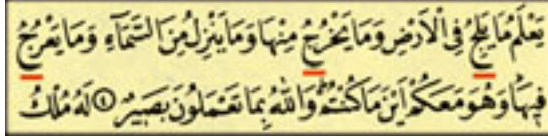 يَعْلَمُ مَا يَلِجُ فِي الْاَرْضِ وَمَا يَخْرُجُ مِنْهَا وَمَا يَنْزِلُ مِنَ السَّمَٓاءِ وَمَا يَعْرُجُ
ف۪يهَاۜ وَهُوَ مَعَكُمْ اَيْنَ مَا كُنْتُمْۜ وَاللّٰهُ بِمَا تَعْمَلُونَ بَص۪يرٌ ۝٤ لَهُ مُلْكُ